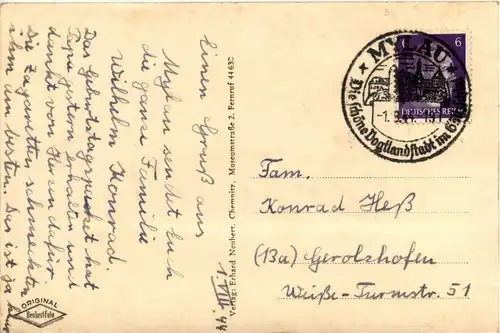 Einen Gruß aus
Mylau sendet Euch
die ganze Familie
Wilhelm Konrad.
Das Geburtstagspacket hat
Papa gestern erhalten und
dankt von Herzen dafür.
Die Zigaretten schmeckten
ihm am besten. Das ist ja
1.VIII.44
Verlag: Erhard Neubert, Chemnitz, Museumstraße 2, Fernruf 44630
ORIGINAL
Neubert-Foto
MYLAU
Die schöne Vogtlandstadt im
6
DEUTSCHES REICH
Fam.
Konrad Heß
(13a) Gerolzhofen
Weiße-Turmstr. 51